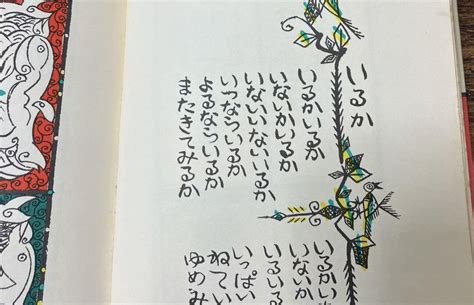 いるか
いるかいるか
いないかいるか
いないいないいるか
いつならいるか
よるならいるか
またきてみるか
いるかいるか
いないか
いるいる
いっぱい
ねてい
ゆめみ